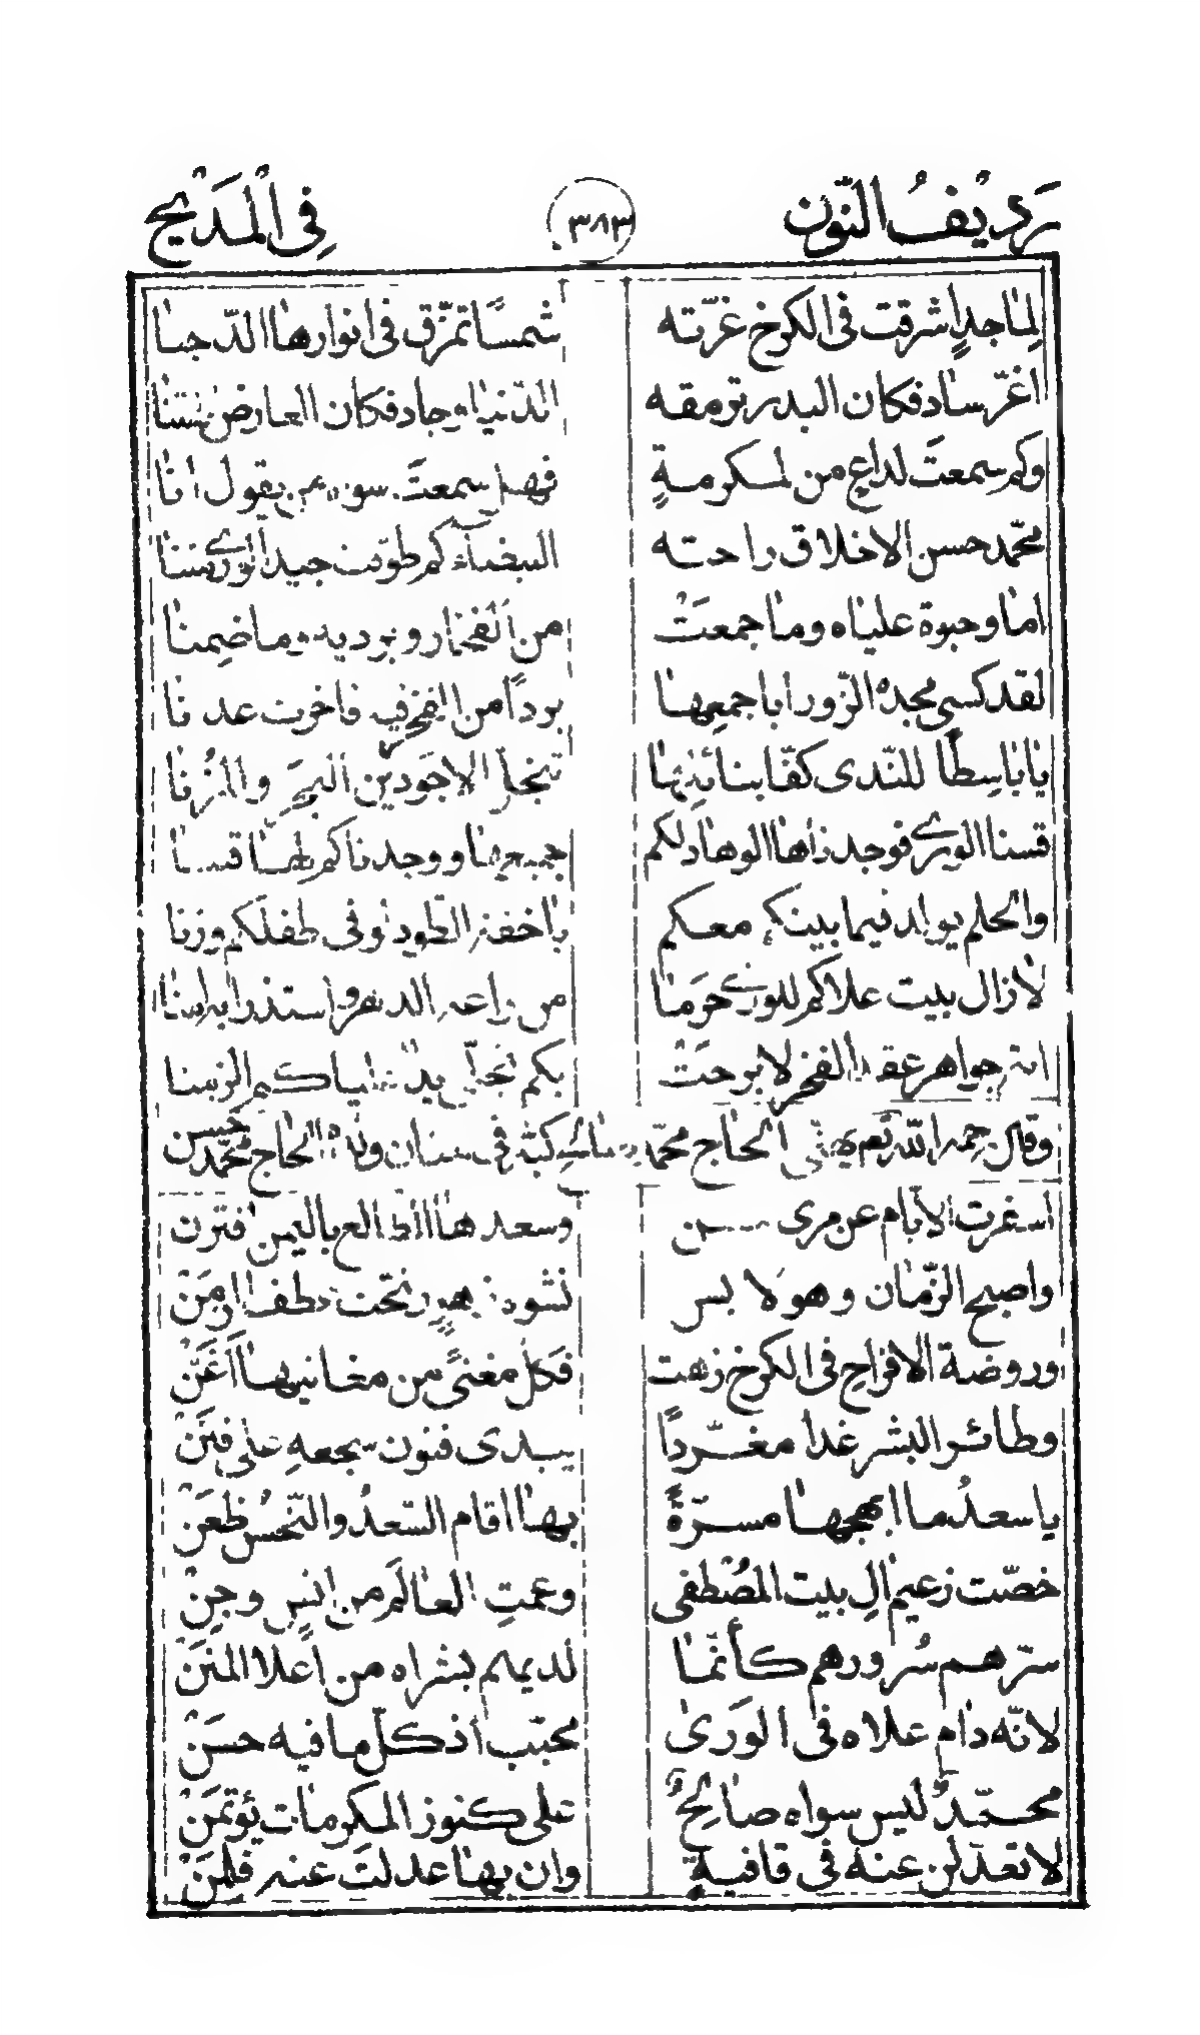 رَدِيْفُ النّون ٣٨٣ فِى الْمَدَيْح
لِمَاجدٍ اشرقت فى الكرخ غرّته شمسًا تمزّق فى انوارها الدّجنا
اغرّ ساد فكان البدر ترمقه الدّنيا وجاد فكان العارض
وكم سمعتَ لداعٍ من لمكرمةٍ فهل سمعتَ سواه من يقول انا
محمّد حسن الاخلاق راحته البيضآء كم طوّقت جيد الورى مننا
اما وحبوة علياه وما جمعتْ من الفخار وبرديه وما ضمنا
لقد كسى مجده الزّورا باجمعها بردًا من الفخر فيه فاخرت عدنا
يا باسطًا للنّدى كفّا بنائلها تبخل الاجودين البحر والمُزنا
قسنا الورى فوجدناها الوهاد لكم جميعها ووجدناكم لها قننا
والحلم يولد فيما بينكم معكم ياخفة الطود لو فى طفلكم وزنا
لا زال بيت علاكم للورى حرما من راعه الدهر واستذرا به امنا
انتم جواهر عقد الفخر لا برحتْ بكم تحلّى يد الزمنا
وقال رحمه الله تعم يهنّى الحاج محمّد كبّة فى ختان ولده الحاج محمّد حسن
اسفرت الايّام عن مرى حسن وسعدها الطالع باليمن اقترن
واصبح الزّمان وهو لابس
وروضة الافراح فى الكرخ زهت فكل مغنىً من مغانيها اَغَنّ
وطائر البشر غدا مغرّدًا يبدى فنون سجعهِ على فننْ
يا سعدُ ما ابهجها مسرّةً بها اقام السّعدُ والنّحسُ ظعنْ
خصّت زعيم الِ بيت المُصْطفى وعمّتِ العالَم من انسٍ وجنْ
سرّهم سُرورهم كأنّما لديهم بشراه من اعلا المننْ
لانّه دام علاه فى الوَرىٰ محبّب اذ كلّ ما فيه حسَنْ
محمّدٌ ليس سواه صالحٌ على كنوز المكرمات يؤتمنْ
لا تعدلن عنه فى قافيةٍ وان بها عدلتَ عنه فلِمنْ